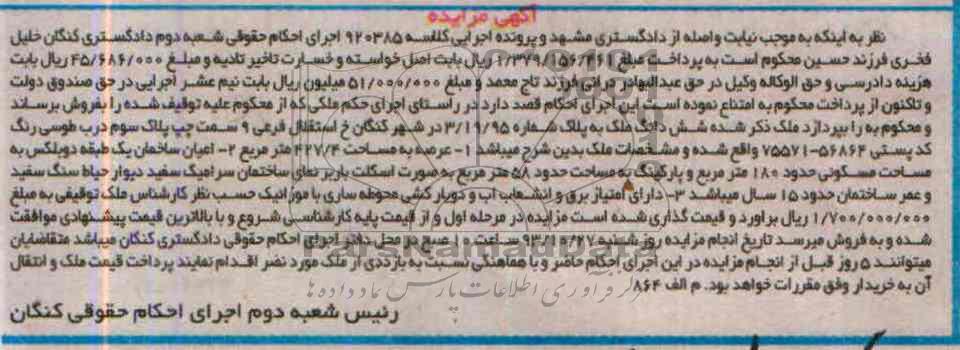 آگهی مزایده
نظر به اینکه به موجب نیابت واصله از دادگستری مشهد و پرونده اجرایی کلاسه ۹۲۰۳۸۵ اجرای احکام حقوقی شعبه دوم دادگستری کنگان خلیل
فخری فرزند حسین محکوم است به پرداخت مبلغ ۱/۳۷۹/۱۵۶/۴۶۱ ریال بابت اصل خواسته و خسارت تاخیر تادیه و مبلغ ۴۵/۶۸۶/۰۰۰ ریال بابت
هزینه دادرسی و حق الوکاله وکیل در حق عبدالبهادر براتی فرزند تاج محمد و مبلغ ۵۱/۰۰۰/۰۰۰ میلیون ریال بابت نیم عشر اجرایی در حق صندوق دولت
و تاکنون از پرداخت محکوم به امتناع نموده است این اجرای احکام قصد دارد در راستای اجرای حکم ملکی که از محکوم علیه توقیف شده را بفروش برساند
و محکوم به را بپردازد ملک ذکر شده شش دانگ ملک به پلاک شماره ۳/۱۹/۹۵ در شهر کنگان خ استقلال فرعی ۹ سمت چپ پلاک سوم درب طوسی رنگ
کد پستی ۵۶۸۶۴-۷۵۵۷۱ واقع شده و مشخصات ملک بدین شرح میباشد ۱- عرصه به مساحت ۴۲۷/۴ متر مربع ۲- اعیان ساخمان یک طبقه دوبلکس به
مساحت مسکونی حدود ۱۸۰ متر مربع و پارکینگ به مساحت حدود ۵۸ متر مربع به صورت اسکلت باربر نمای ساختمان سرامیک سفید دیوار حیاط سنگ سفید
و عمر ساختمان حدود ۱۵ سال میباشد ۳- دارای امتیاز برق و انشعاب آب و دیوار کشی محوطه سازی با موزائیک حسب نظر کارشناس ملک توقیفی به مبلغ
۱/۷۰۰/۰۰۰/۰۰۰ ریال براورد و قیمت گذاری شده است مزایده در مرحله اول و از قیمت پایه کارشناسی شروع و با بالاترین قیمت پیشنهادی موافقت
شده و به فروش میرسد تاریخ انجام مزایده روز شنبه ۹۳/۱۰/۲۷ ساعت ۱۰ صبح در محل دفتر اجرای احکام حقوقی دادگستری کنگان میباشد متقاضیان
میتوانند ۵ روز قبل از انجام مزایده در این اجرای احکام حاضر و با هماهنگی نسبت به بازدی از ملک مورد نضر اقدام نمایند پرداخت قیمت ملک و انتقال
آن به خریدار وفق مقررات خواهد بود. م الف ۸۶۴
رئیس شعبه دوم اجرای احکام حقوقی کنگان
مرکز فرآوری اطلاعات پارس نماد داده ها